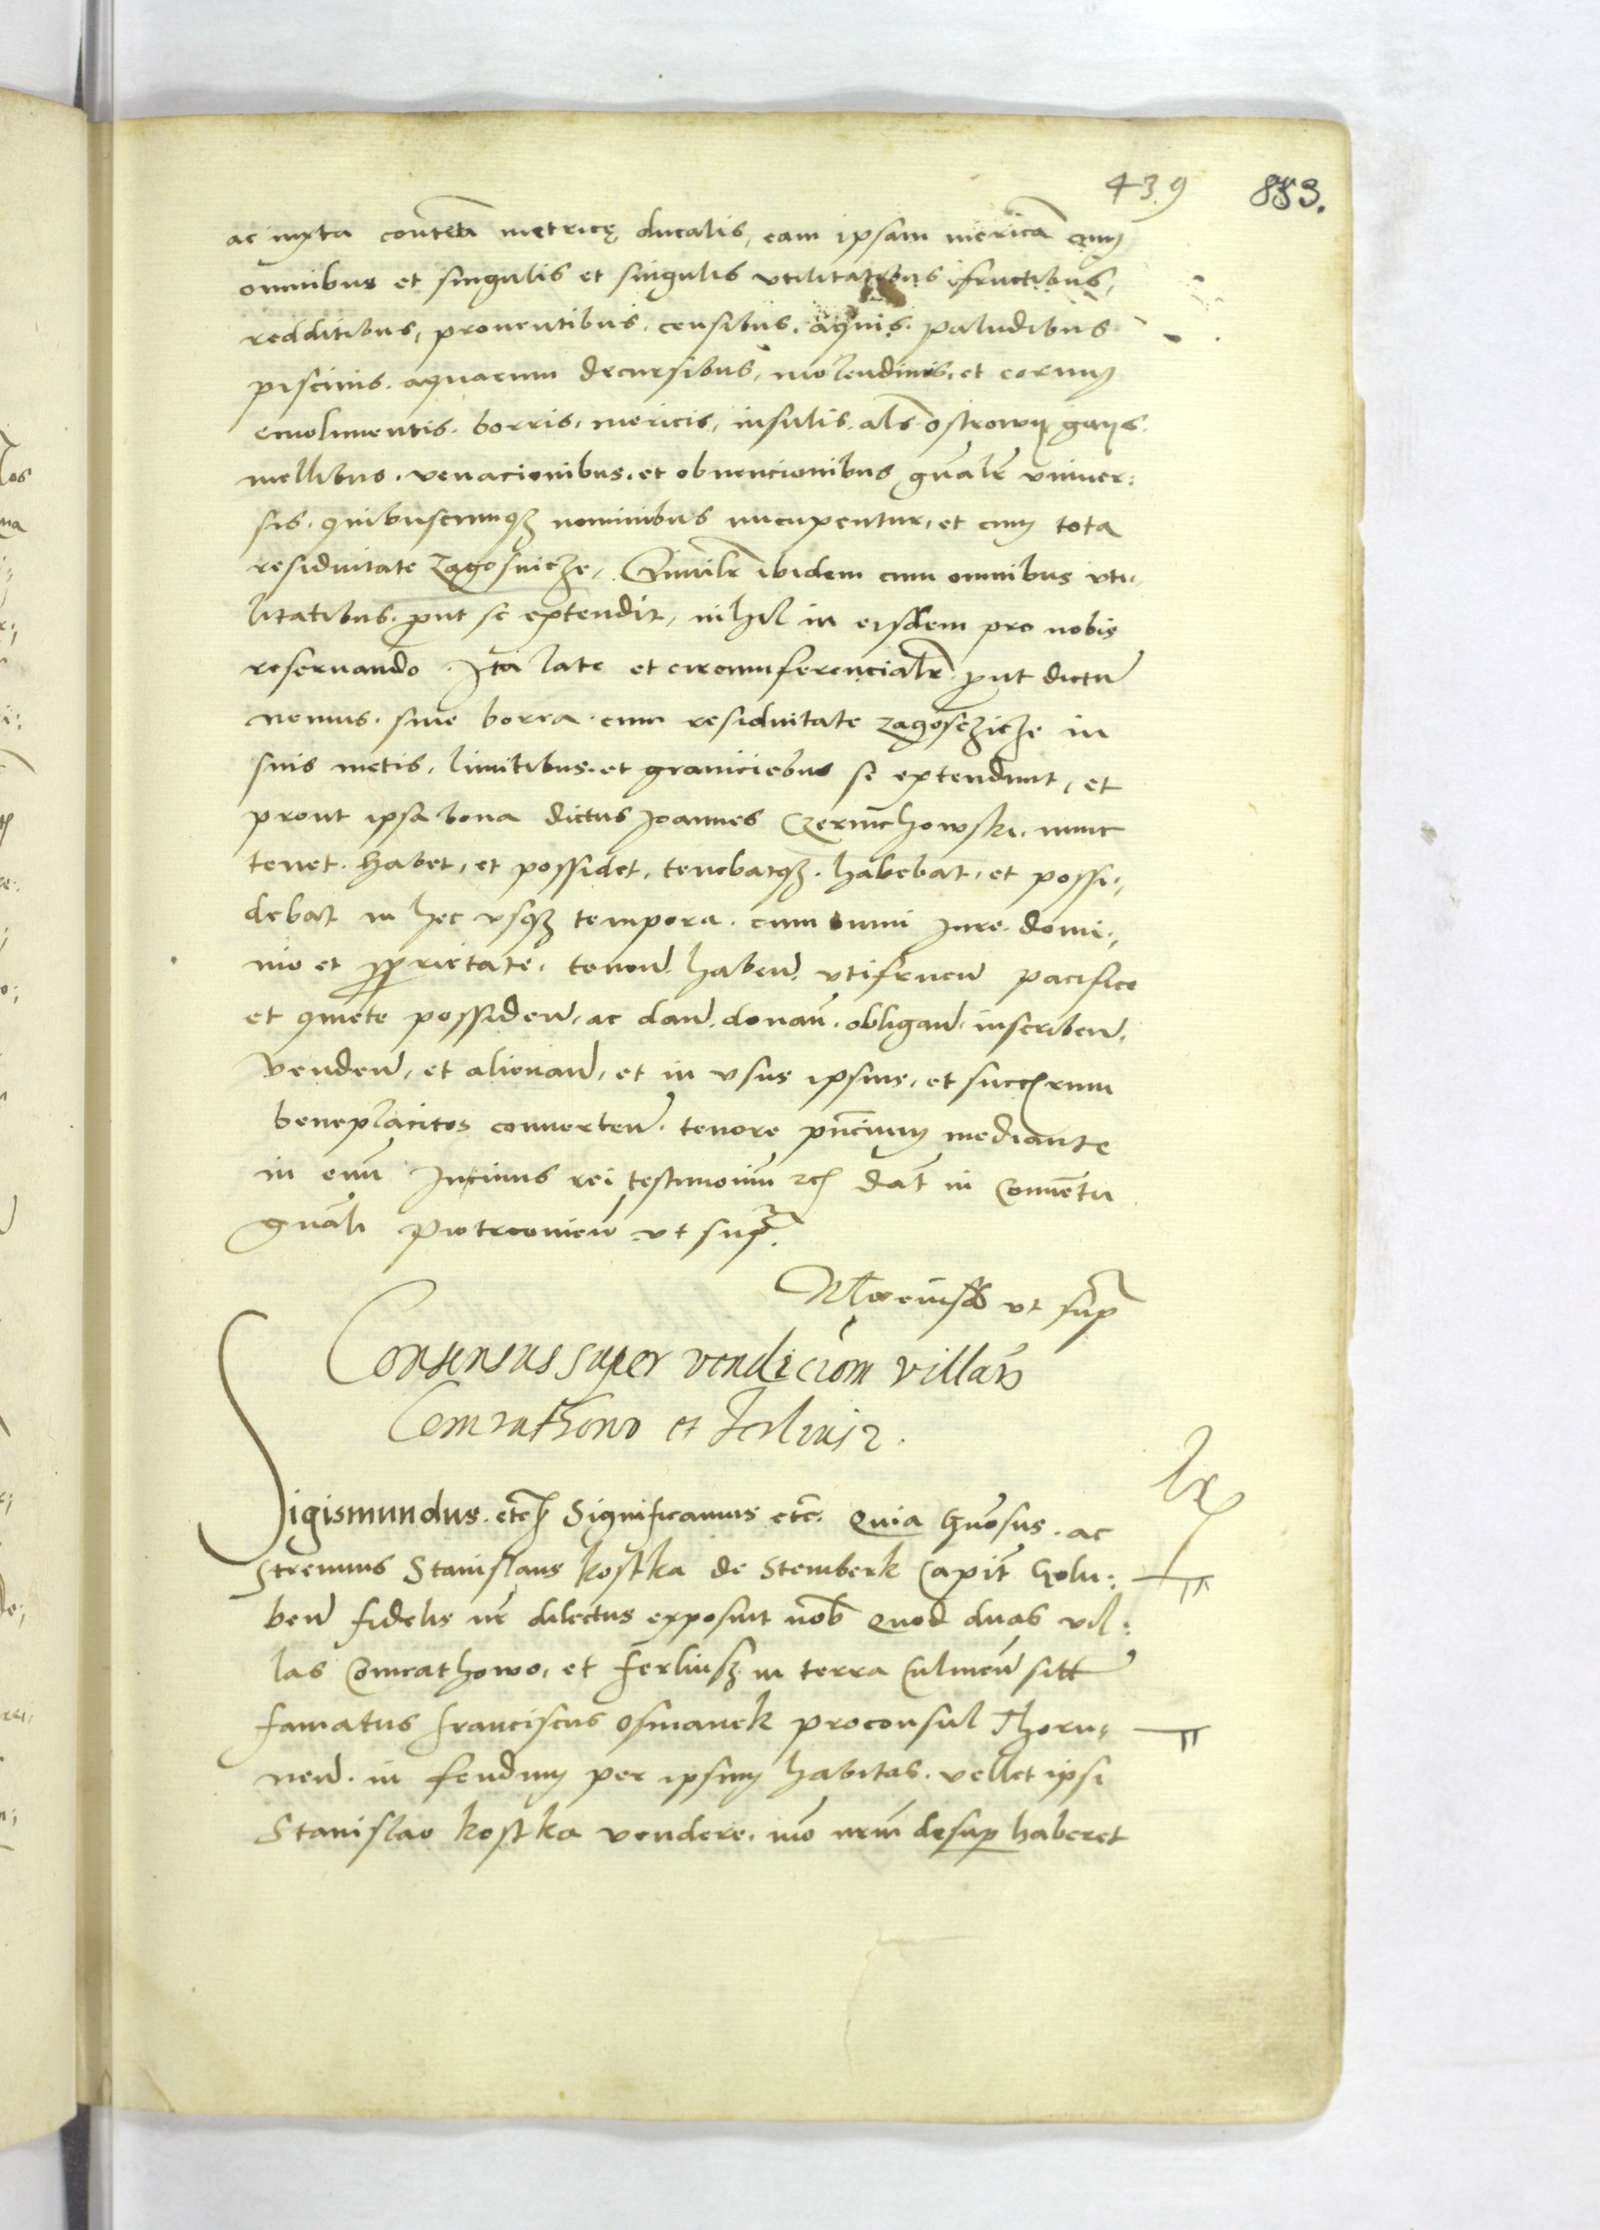 439 853.
ac iuxta content̄a metricę ducalis, eam ipsam mericā cum
omnibus et singulis et singulis vtilitatibus, fructibus,
redditibus, prouentibus, censibus, aquis, paludibus
piscinis, aquarum decursibus, molendinis, et eorum
emolimentis, borris, mericis, insulis, als̄ ostrowy, gays,
mellibus, venacionibus, et obuencionibus gn̄alr̄ vniuer:
sis, quibuscunqȝ nominibus nucupentur, et cum tota
residuitate Zagosnicze, similr̄ ibidem cum omnibus vti,
litatibus, put se extendit, nihil in eisdem pro nobis
reseruando. Ita late et circumferencialr̄ put dictū
nemus, siue borra, cum residuitate zagosczicze in
suis metis, limitibus, et graniciebus se extendunt, et
prout ipsa bona dictus Joannes Czernchowski, nunc
tenet, habet, et possidet, tenebatqȝ, habebat, et possi:,
debat in hec vsqȝ tempora, cum omni Jure, domi:,
nio et pprietate, tenen̄, haben̄, vtifruen̄ pacifice
et quiete possiden̄, ac dan̄, donan̄, obligan̄, inscriben̄,
venden̄, et alienan̄, et in vsus ipsius, et succrum
beneplacitos conuerten̄, tenore pn̄cium mediante
in cuius rei testimoniū Dat̄ in Conuentu
gn̄ali Piotrcouien̄ vt sup̄.
vt sup̄
Consensus super vendiciom villaꝝ
Comrathowo et Ferlusz.
Sigismundus. etc̄ Significamus etc̄. Quia Gn̄osus, ac
Strenuus Stanislaus Kostka de Stemberk Capit̄ Golu:
ben̄ fidelis nr̄ dilectus exposuit nob̄ quod duas vil:
las Comrathowo, et Ferlusz in terra Culmen̄ sitt̄
famatus Franciscus Osmanek proconsul Thoru:
nen̄, in feudum per ipsum habitas, vellet ipsi
Stanislao Kostka vendere, mō nr̄m desup haberet